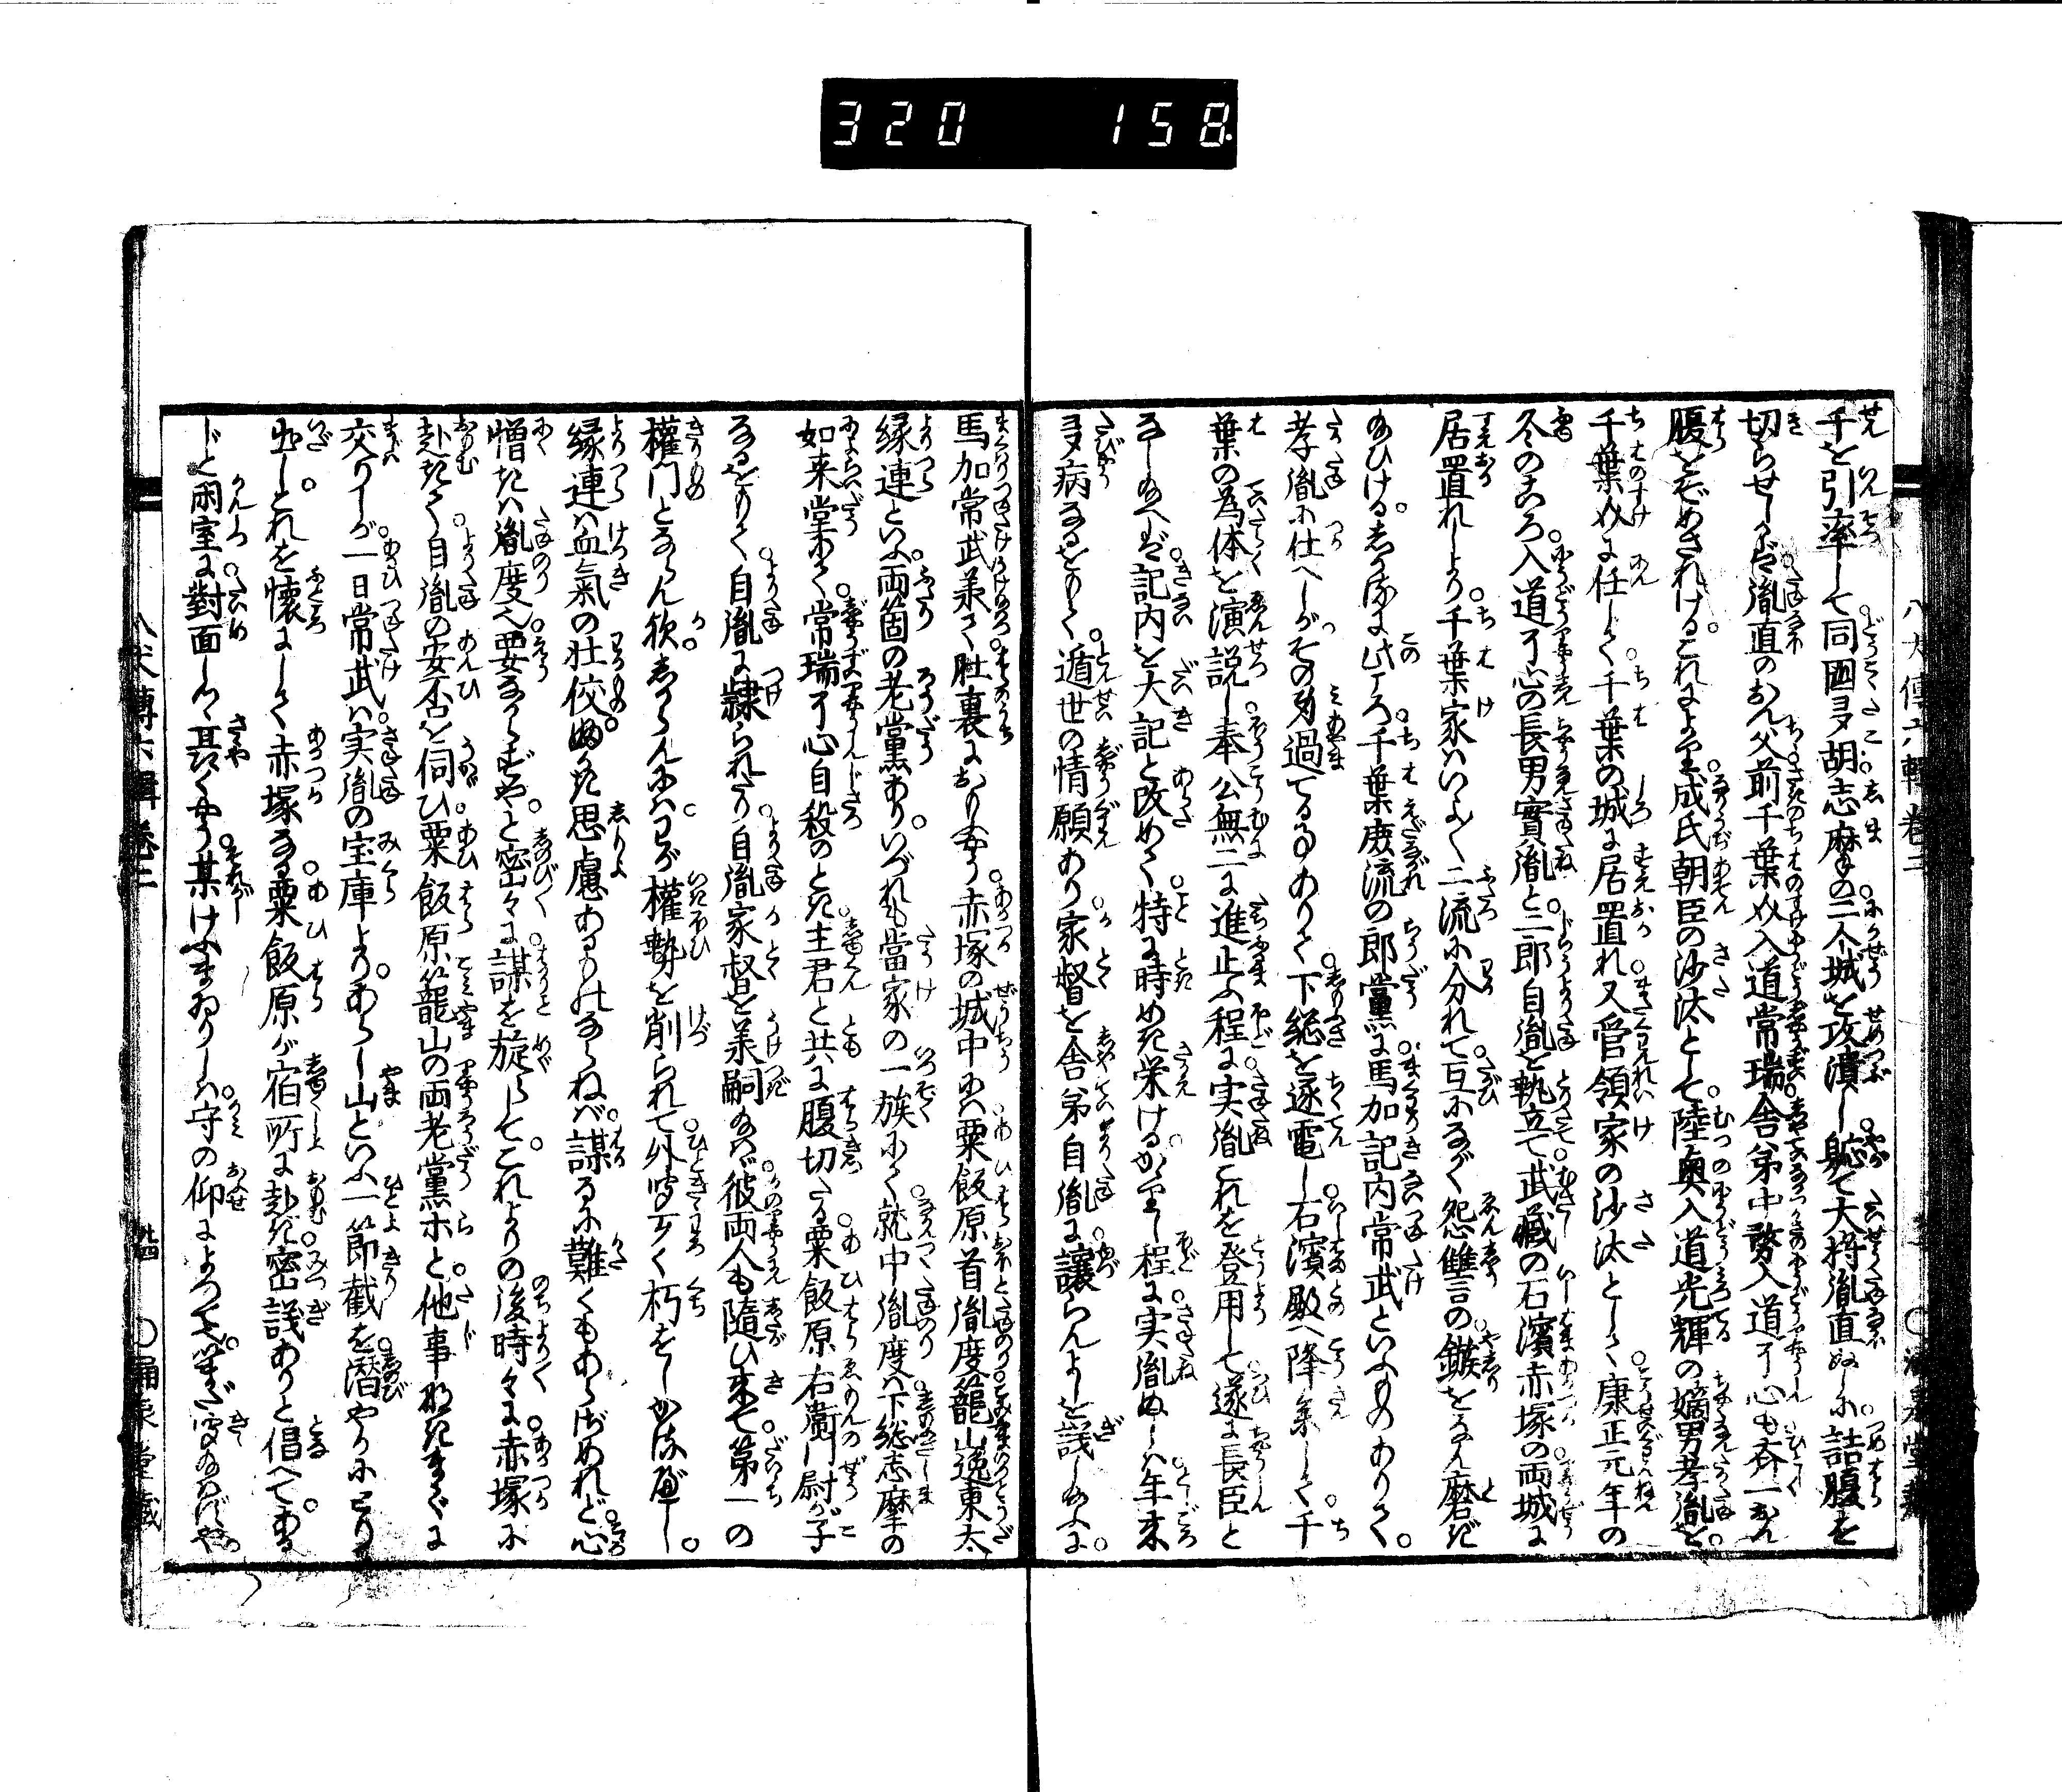 320 158
八犬傳六輯卷二
千を引率して同國多胡志麻の二个城を攻潰し軈て大將胤直ぬしに詰腹を
切らせしかば胤直のおん父前千葉介入道常瑞舎弟中務入道了心も斉一おん
腹をぞめされけるこれによりて成氏朝臣の沙汰として陸奥入道光輝の嫡男孝胤を
千葉介に任して千葉の城に居置れ又管領家の沙汰として康正元年の
冬のころ入道了心の長男實胤と二郎自胤を執立て武藏の石濱赤塚の両城に
居置れしより千葉家はいよ〳〵二流に分れて互にながく怨讐の鏃をなん磨ぎ
給ひけるしかるに此ころ千葉庶流の郎黨に馬加記内常武といふものありて
孝胤に仕へしがその身過てる事ありて下総を逐電し石濱殿へ降参して千
葉の為体を演説し奉公無二に進止ふ程に実胤これを登用して遂に長臣と
なし給へば記内を大記と改めて特に時めき栄けるかくて程に実胤ぬしは年来
多病なるをもて遁世の情願あり家督を舎弟自胤に讓らんよしを議し給ふに
馬加常武羕て肚裏におもふやう赤塚の城中には粟飯原首胤度籠山逸東太
縁連といふ両箇の老黨ありいづれも當家の一族にて就中胤度は下総志摩の
如来堂にて常瑞了心自殺のとき主君と共に腹切たる粟飯原右衛門尉が子
なるをもて自胤に隷られたり自胤家督を羕嗣給はゞ彼両人も隨ひ来て第一の
權門とならん欤しからんにはわが權勢を削られて外廳守く朽をしかるべし
縁連は血氣の壮佼ぬかき思慮あるものならねば謀るに難くもあらざめれど心
憎きは胤度也要ならずやと密々に謀を旋らしてこれよりの後時々に赤塚に
赴きて自胤の安否を伺ひ粟飯原籠山の両老黨ホと他事なきまでに
交りしが一日常武は実胤の宝庫よりあらし山といふ一節截を潜やかにとり
出しこれを懐にして赤塚なる粟飯原が宿所に赴き密議ありと倡へてある
じと閑室に對面しつゝ耳語くやう某けふまゐりしは守の仰によつて也まだ
八犬傳六輯卷二